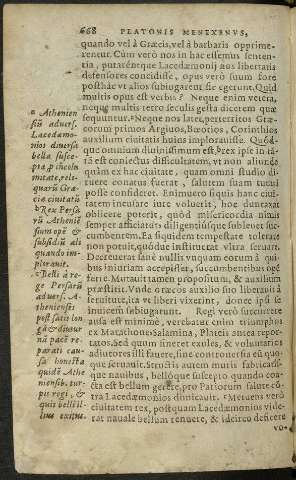 668 PLATONIS MENEXENVS,
quando vel à Græcis, vel à barbaris opprime-
rentur. Cùm verò nos in hac essemus senten-
tia, putarentque Lacedæmonij nos libertatis
defensores concidisse, opus verò suum fore
posthac vt alios subiugarent sic egerunt. Quid
multis opus est verbis? Neque enim vetera,
neque multis retro seculis gesta dicerem quæ
sequuntur. Neque nos latet, perterritos Græ-
corum primos Argiuos, Bœotios, Corinthios
auxilium ciuitatis huius implorauisse. Quód-
que omnium diuinissimum est, rex ipse in id
difficultatem, vt non aliunde
quàm ex hac ciuitate, quam omni studio di-
ruere conatus fuerat, salutem suam
posse confideret. Enimuero siquis hanc ciui-
tatem incusare iure voluerit, hoc duntaxat
obiicere poterit, quòd misericordia nimis
semper afflictatis diligentiúsque subleuet suc-
cumbentem. Ea siquidem tempestate tolerate
non potuit, quod
Decreuerat sanè nullis vnquam eorum à qui-
bus iniuriam accepisset, succumbentibus opẽ
ferre. Mutauit tamen propositum, & auxilium
præstitit. Vnde Græcos auxilio suo liberauit à
seruitute, ita vt liberi vixerint, donec ipsi se
inuicem subiugarunt. Regi verò succurrere
ausa est minimè, verebatur enim triumphos
ex Marathone, Salamina, Plateis antea reptor-
tatos. Sed quum sineret exules, & voluntarios
adiutores illi fauere, sine controuersia eũ quo-
que seruauit. Structis autem muris fabricatis-
que nauibus, bellóque suscepto quando coa-
cta est bellum gerere, pro Patiorum salute cõ-
tra Lacedæmonios dimicauit. Metuens verò
ciuitatem rex, postquam Lacedæmonios vide-
rat nauale bellum renuere, & idcirco deficere
vo-
Athenien
siũ aduers.
Lacedæmo-
nios diuersa
bella susce-
pta, p incolu
mitate, reli-
quarũ Græ-
ciæ ciuitatũ
Rex Persa
rũ Atheniẽ
sium opẽ &
subsidiũ ali
quando im-
plorauit.
Belli à re-
ge Persarũ
aduers. A-
thenienses
post satis lon
gã & diutur
nã pacẽ re-
parati cau-
sa honesta
quidẽ Athe
niensib. tur-
pis regi, &
quis belli il-
lius exitus.